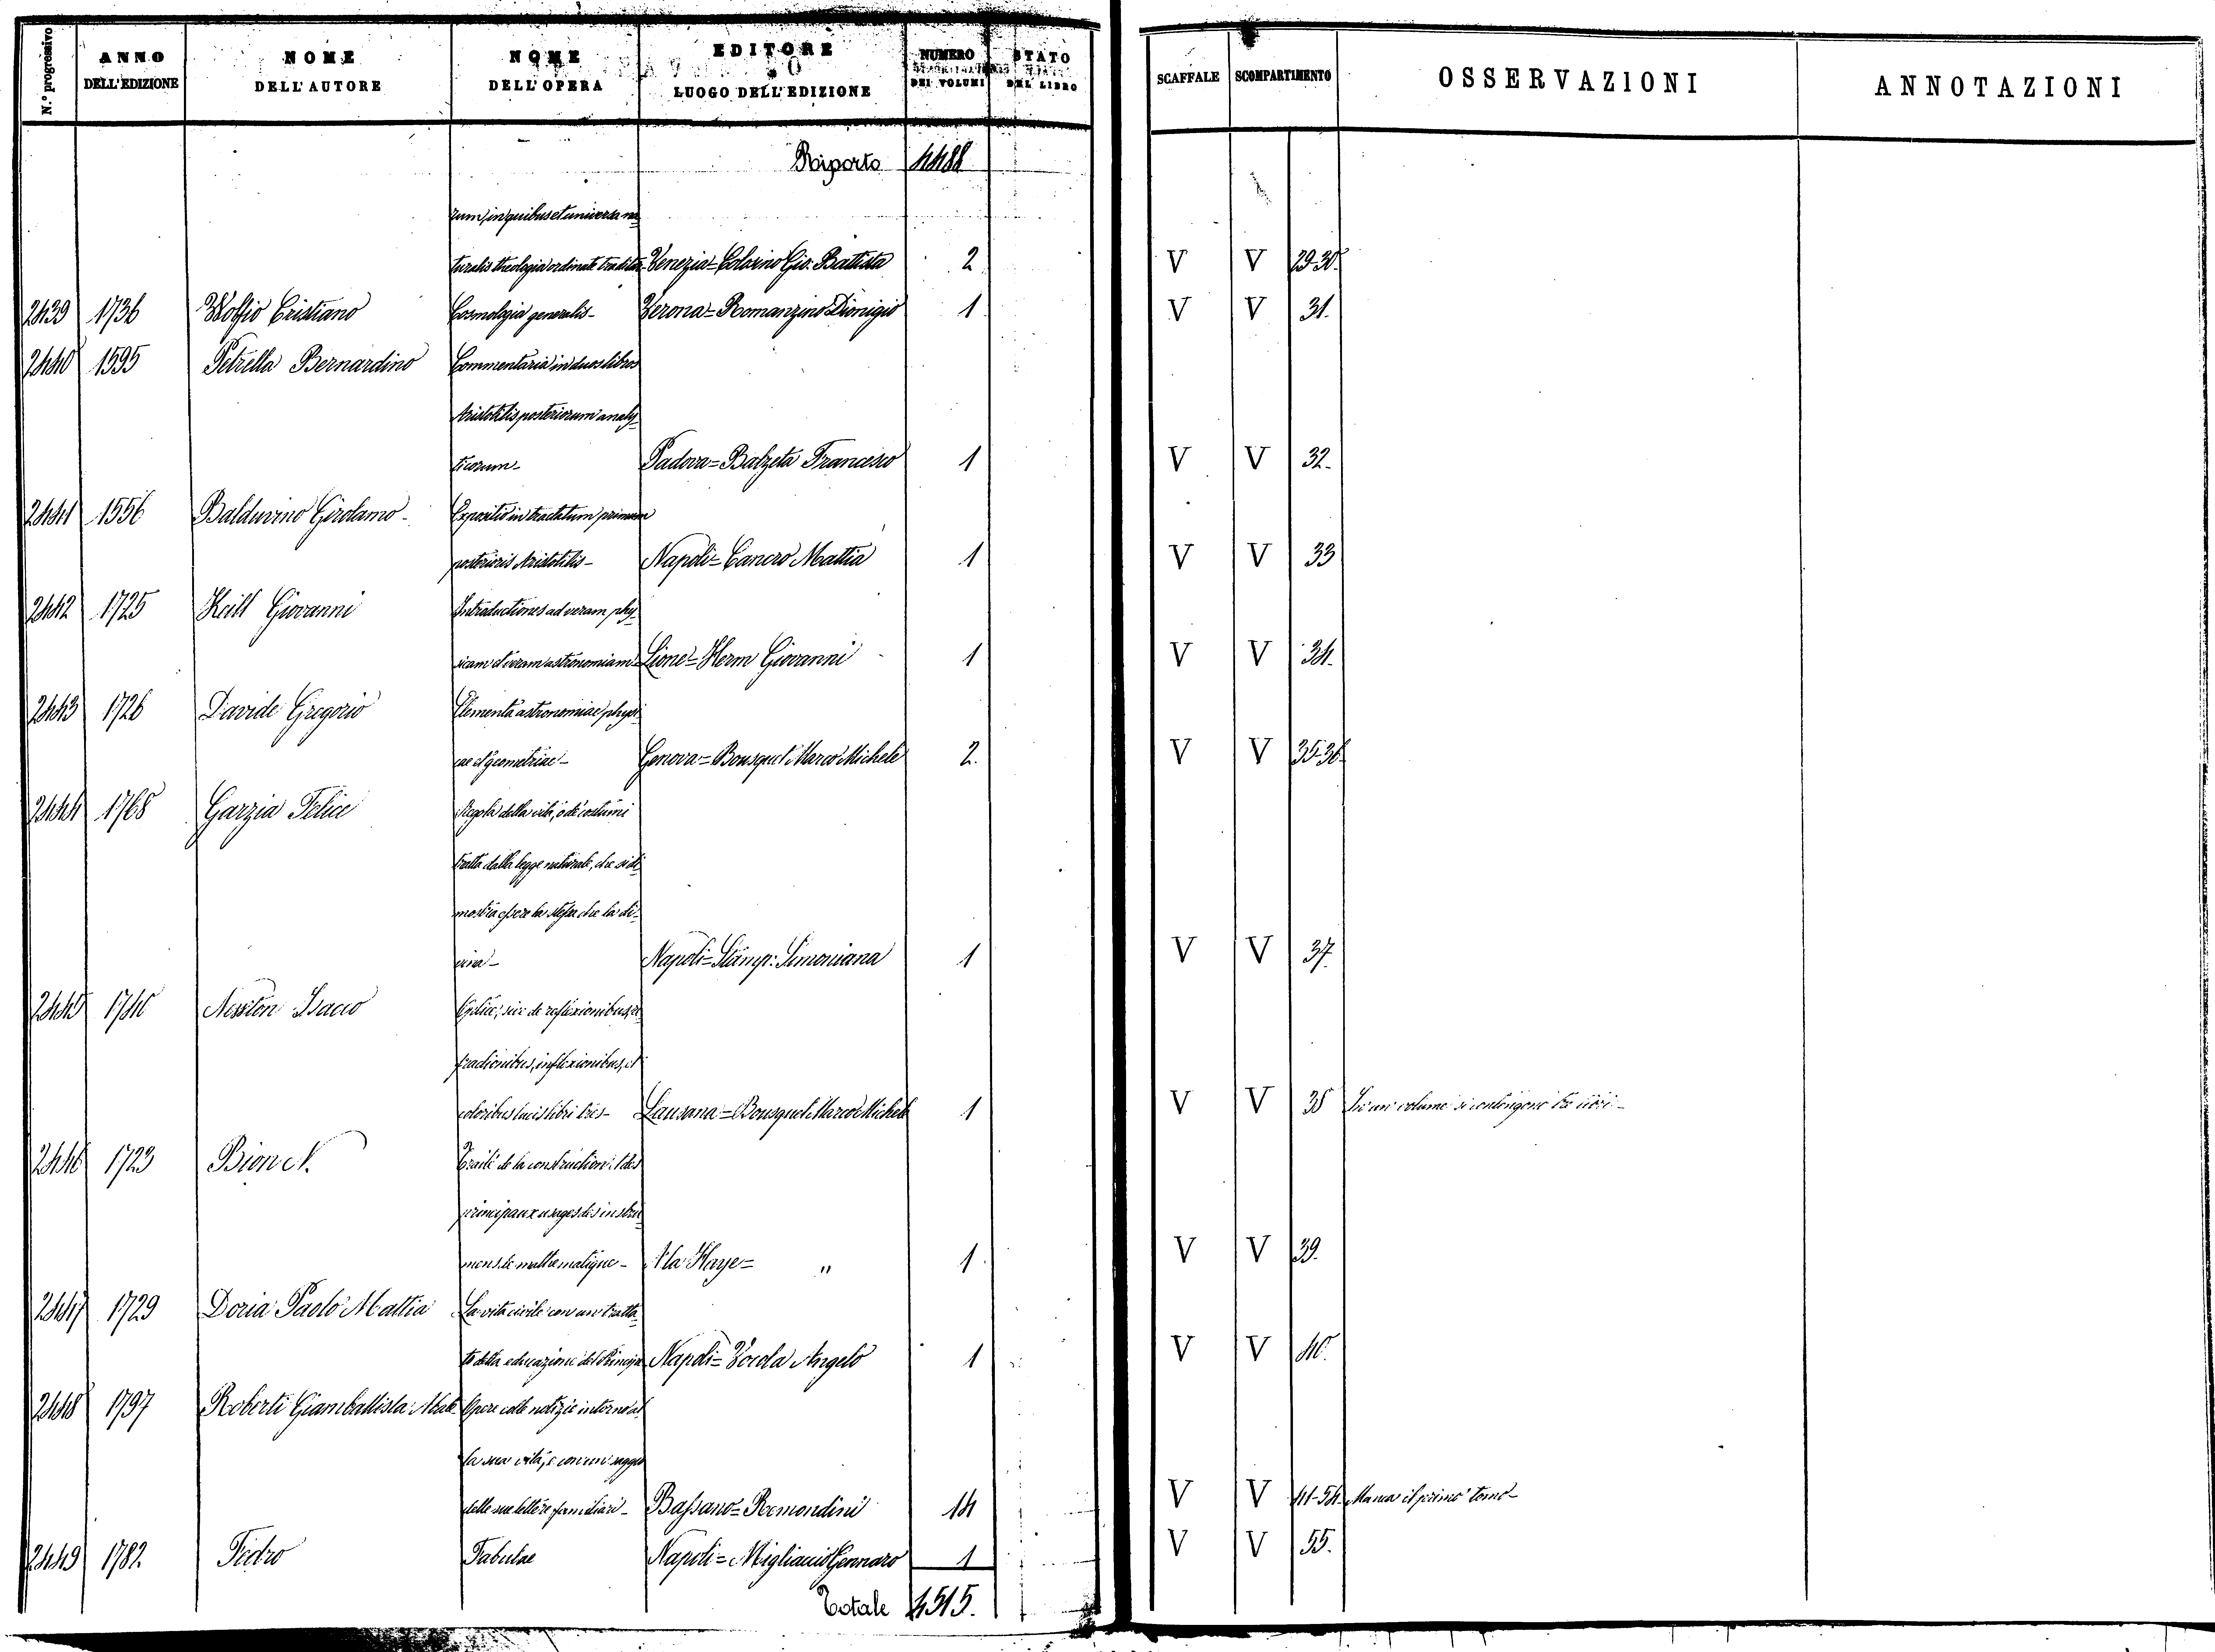 N.º progressivo | ANNO DELL'EDIZIONE | NOME DELL'AUTORE | NOME DELL'OPERA | EDITORE LUOGO DELL'EDIZIONE | NUMERO DEI VOLUMI | STATO DEL LIBRO | SCAFFALE | SCOMPARTIMENTO | OSSERVAZIONI | ANNOTAZIONI
Riporto 4488
rum, in quibus et universa na-
turalis theologia ordinate traditur- Venezia= Colosino Gio: Battista 2 V V 29-30.
2439 1736 Wolfio Cristiano Cosmologia generalis- Verona= Romanzino Dionigio 1 V V 31.
2440 1595 Petrella Bernardino Commentaria in duos libros
Aristotilis posteriorum analy-
ticorum- Padova= Balzeta Francesco 1 V V 32.
2441 1556 Balduvino Girolamo- Expositio in tractatum primum
posterioris Aristotilis- Napoli= Cancro Mattia 1 V V 33
2442 1725 Keill Giovanni Introductiones ad veram phy-
sicam et veram astronomiam- Lione= Herm Giovanni 1 V V 34.
2443 1726 Davide Gregorio Elementa astronomiae physi-
cae et geometriae- Genova= Bousquet Marco Michele 2. V V 35-36
2444 1768 Garzia Felice Regola della vita, o de' costumi
tratta dalla legge naturale, che si di-
mostra essere la stessa che la di-
vina- Napoli= Stamp: Simoniana 1 V V 37.
2445 1740 Newton Isacco Optice, sive de reflexionibus, re-
fractionibus, inflexionibus, et
coloribus lucis libri tres- Lausana= Bousquet Marco Michele 1 V V 38 In un volume si contengono tre libri-
2446 1723 Bion N. Traité de la construction et des
principaux usages des instru-
mens de mathematique- A la Haye= " 1. V V 39.
2447 1729 Doria Paolo Mattia La vita civile con un tratta-
to della educazione del Principe Napoli= Vocola Angelo 1 V V 40.
2448 1797 Roberti Giamballista Abate Opere colle notizie intorno al-
la sua vita, e con un saggio
delle sue lettere familiari- Bassano= Remondini 14 V V 41-54. Manca il primo tomo-
2449 1782 Fedro Fabulae Napoli= Migliaccio Gennaro 1 V V 55.
Totale 4515.